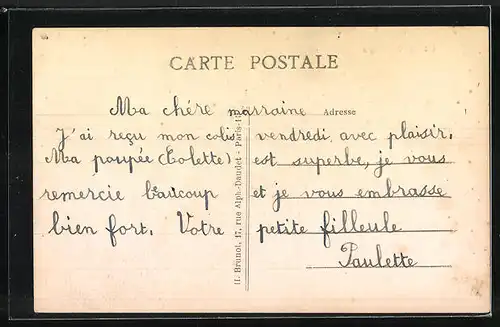 CARTE POSTALE
Ma chère marraine
Adresse
J'ai reçu mon colis vendredi avec plaisir.
Ma poupée (Colette) est superbe, je vous
remercie baucoup et je vous embrasse
bien fort. Votre petite filleule
Paulette
H. Brunot, 17, rue Alph.-Daudet - Paris-14